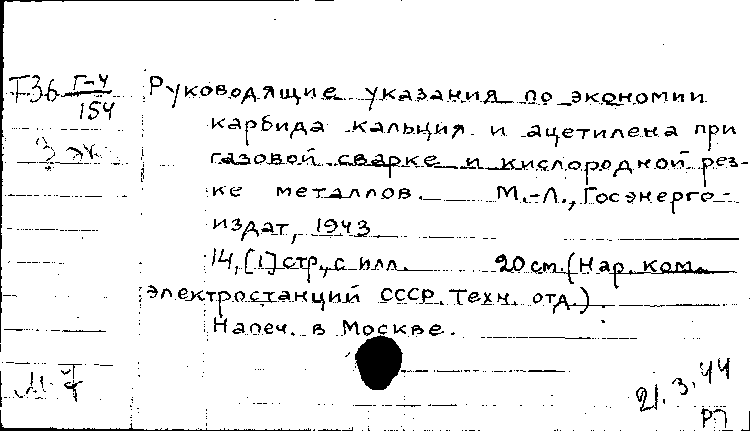 F36 Г-4/154
Руководящие указания по экономии
карбида кальция и ацетилена при
газовой сварке и кислородной рез-
ке металлов. М.-Л., Госэнерго-
издат, 1943
14, [1] стр., с илл. 20 см. (Нар. ком.
электростанций СССР. Техн. отд.).
Напеч. в Москве.
3 эк.
21.3.44
РП